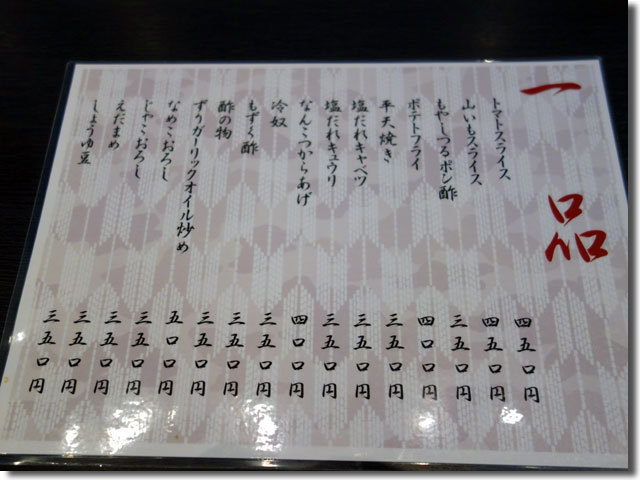 一品
トマトスライス 四五〇円
山いもスライス 四五〇円
もやしつるポン酢 三五〇円
ポテトフライ 四〇〇円
平天焼き 三五〇円
塩だれキャベツ 三五〇円
塩だれキュウリ 三五〇円
なんこつからあげ 四〇〇円
冷奴 三五〇円
もずく酢 三五〇円
酢の物 三五〇円
ずりガーリックオイル炒め 五〇〇円
なめこおろし 三五〇円
じゃこおろし 三五〇円
えだまめ 三五〇円
しょうゆ豆 三五〇円